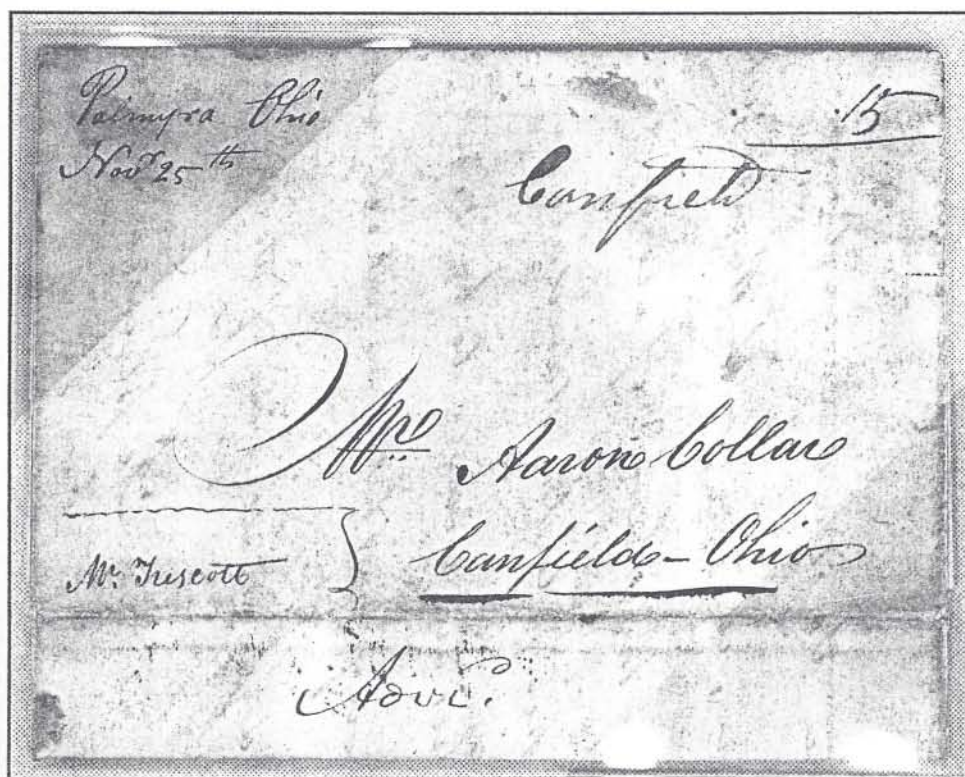 Palmyra Ohio
Novr 25th
15
Canfield
Mr Aaron Collar
Canfield - Ohio
Mr. Trescott
Adve.